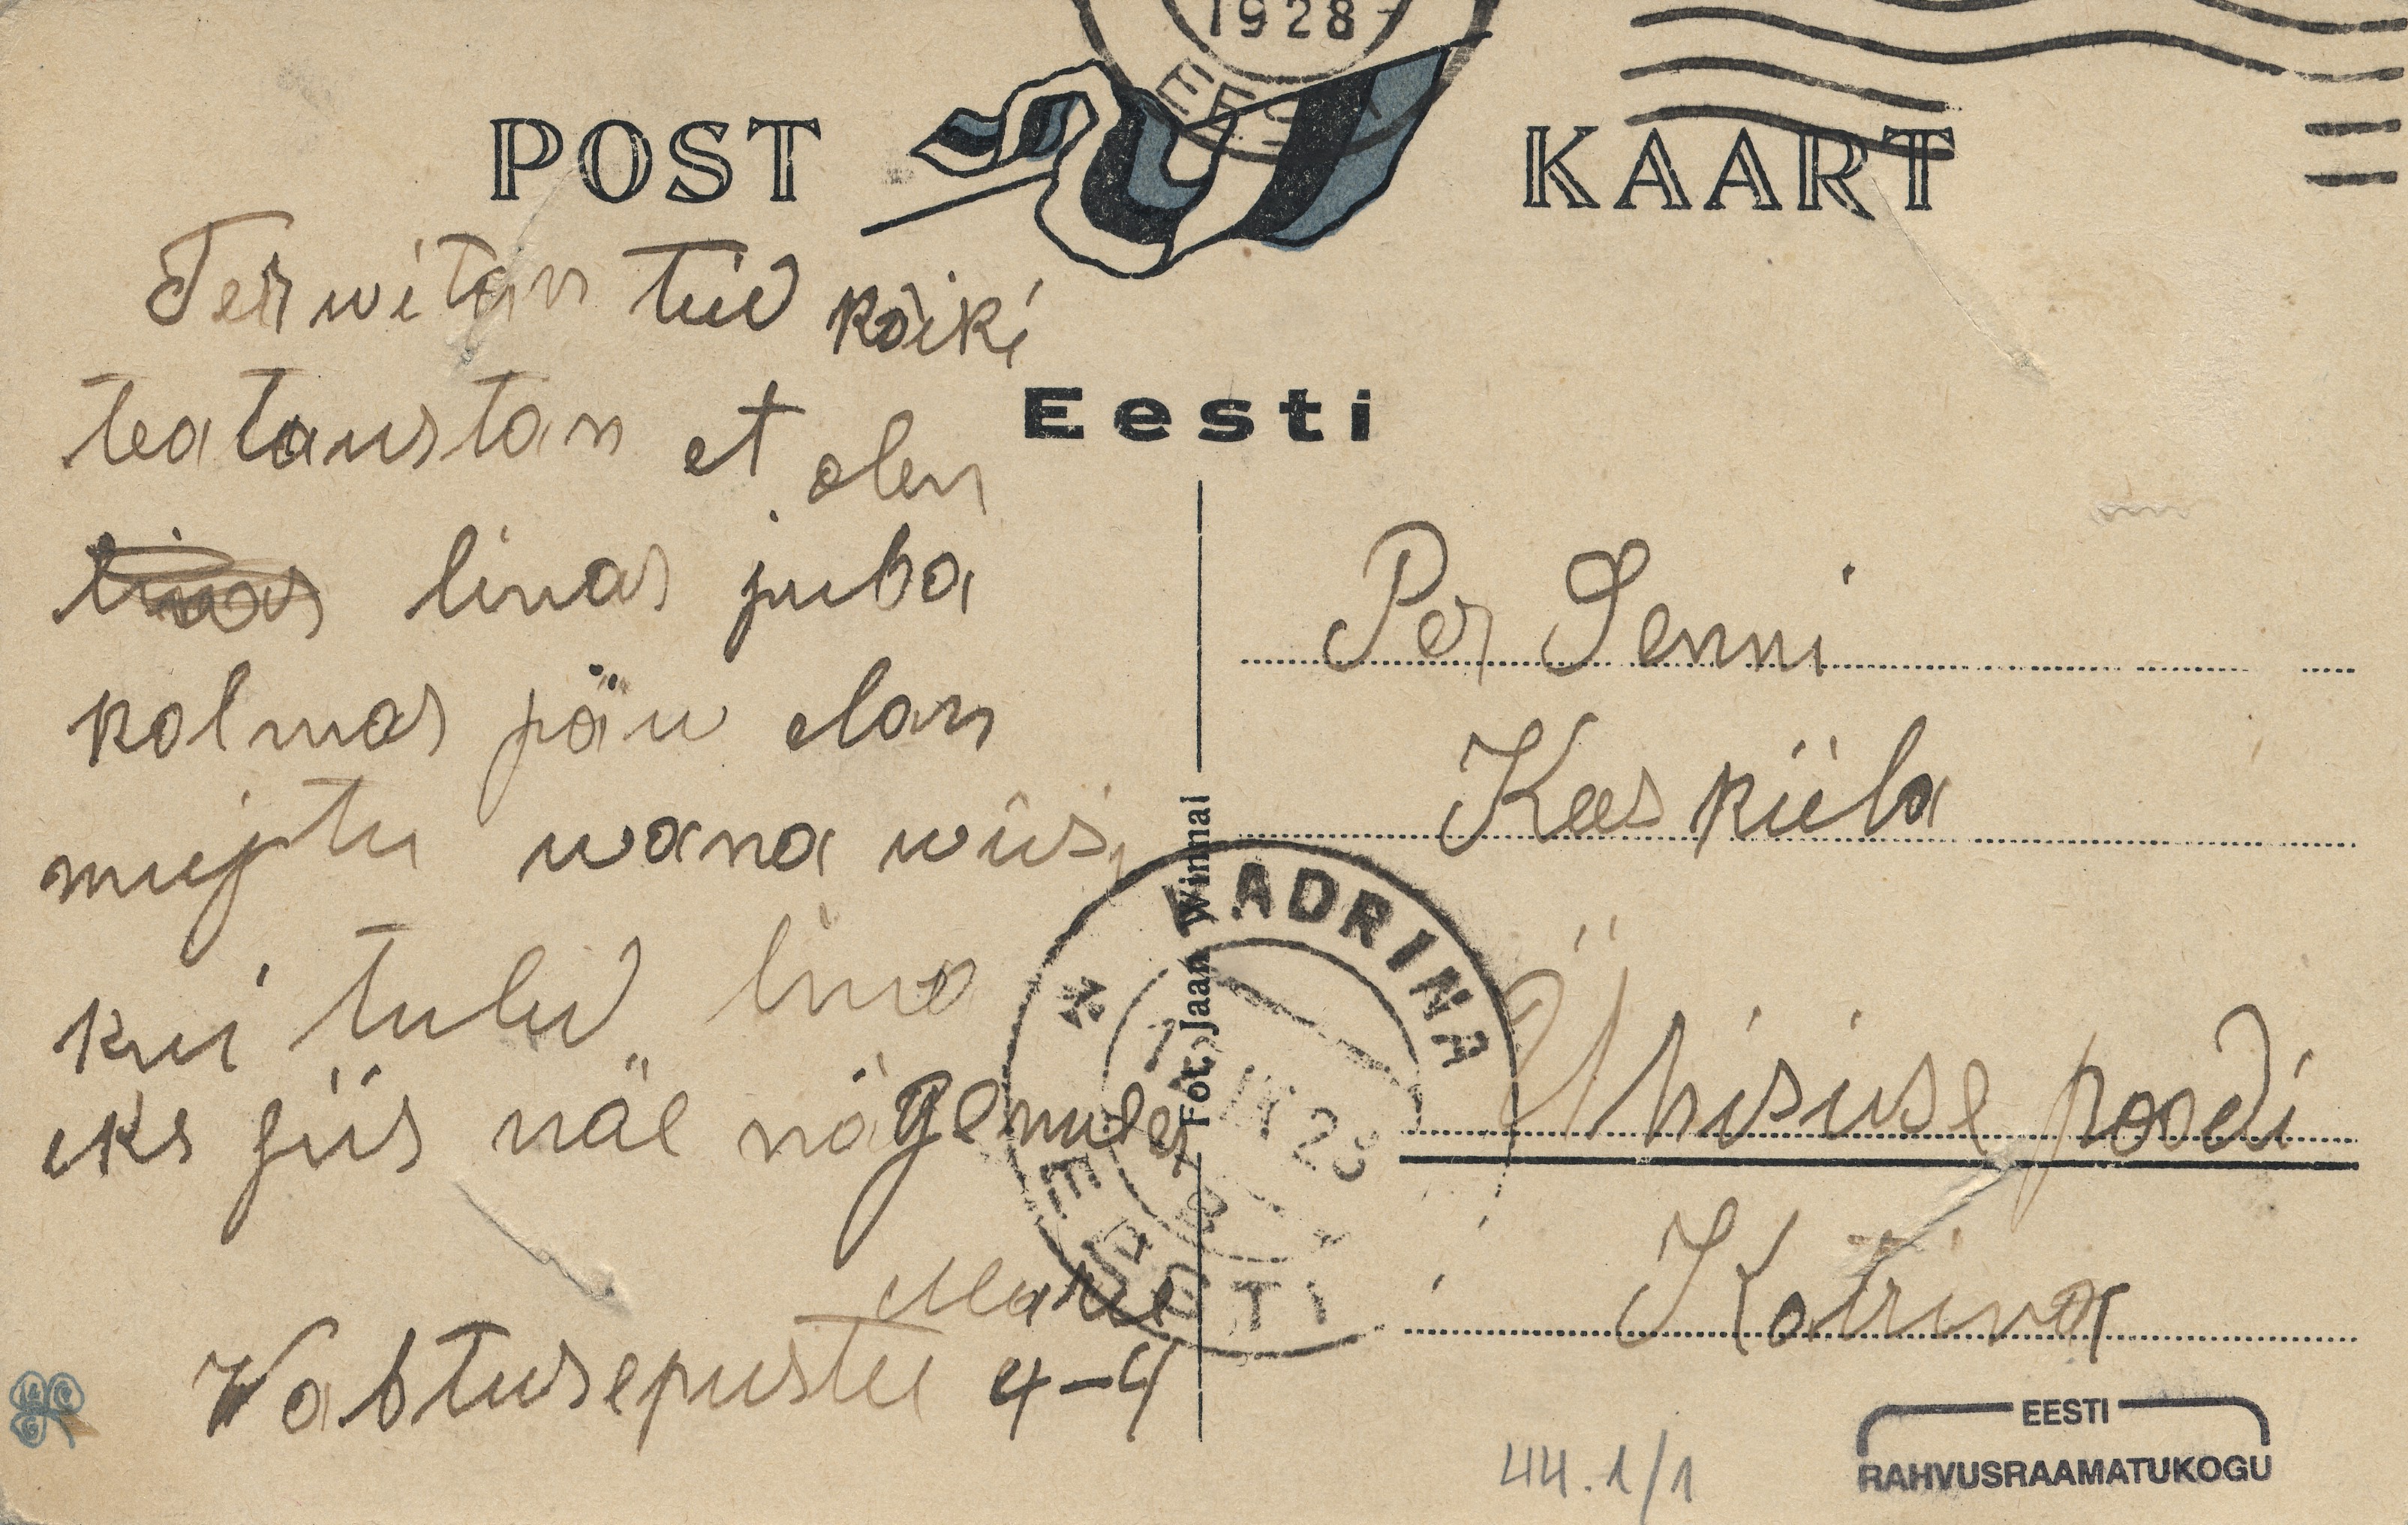 1928
EESTI
POST KAART
Eesti
Terwitan teid kõiki
teataustan et olen
linas juba
kolmas päw elan
mujtu wana wiisi
kui tuled lina
eks siis näe nägemiseg
Marie
Wabtusepustee 4-4
Fot. Jaan Winnal
KADRINA
7 IX 28
EESTI
Per Jenni
Kees küla
Ühisuse poodi
Katrina
44.1/1
EESTI
RAHVUSRAAMATUKOGU